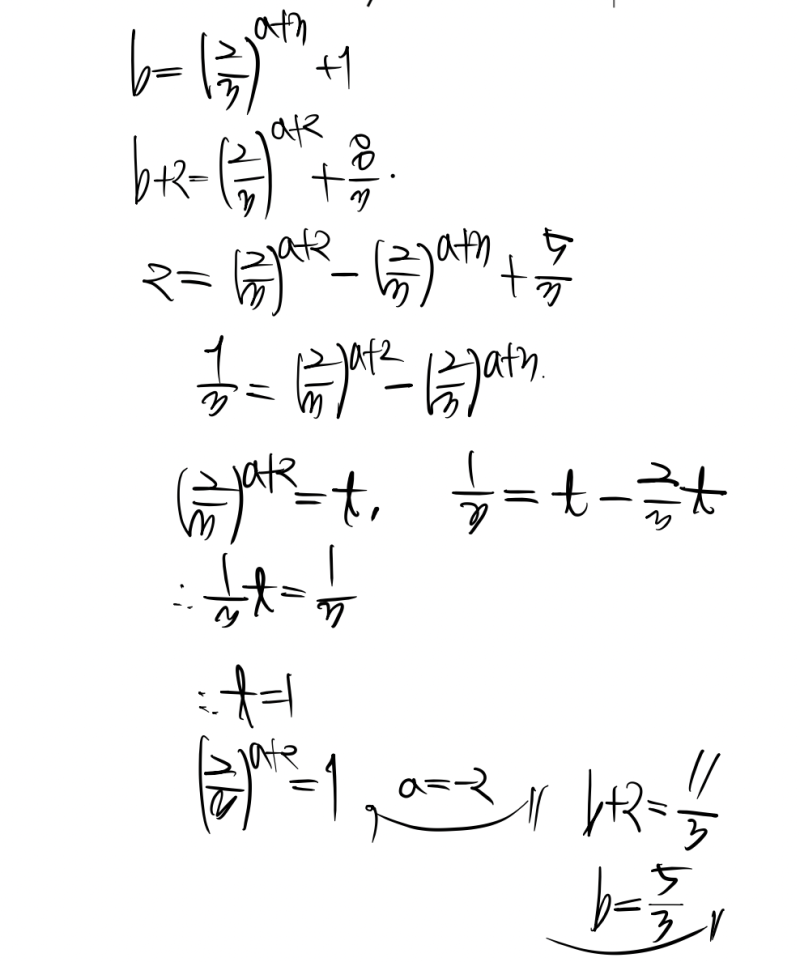 b = (2/3)^{a+3} + 1
b+2 = (2/3)^{a+2} + 8/3 .
2 = (2/3)^{a+2} − (2/3)^{a+3} + 5/3
1/3 = (2/3)^{a+2} − (2/3)^{a+3}.
(2/3)^{a+2} = t, 1/3 = t − 2/3 t
∴ 1/3 t = 1/3
∴ t = 1
(2/3)^{a+2} = 1, a = −2 b+2 = 11/3
b = 5/3